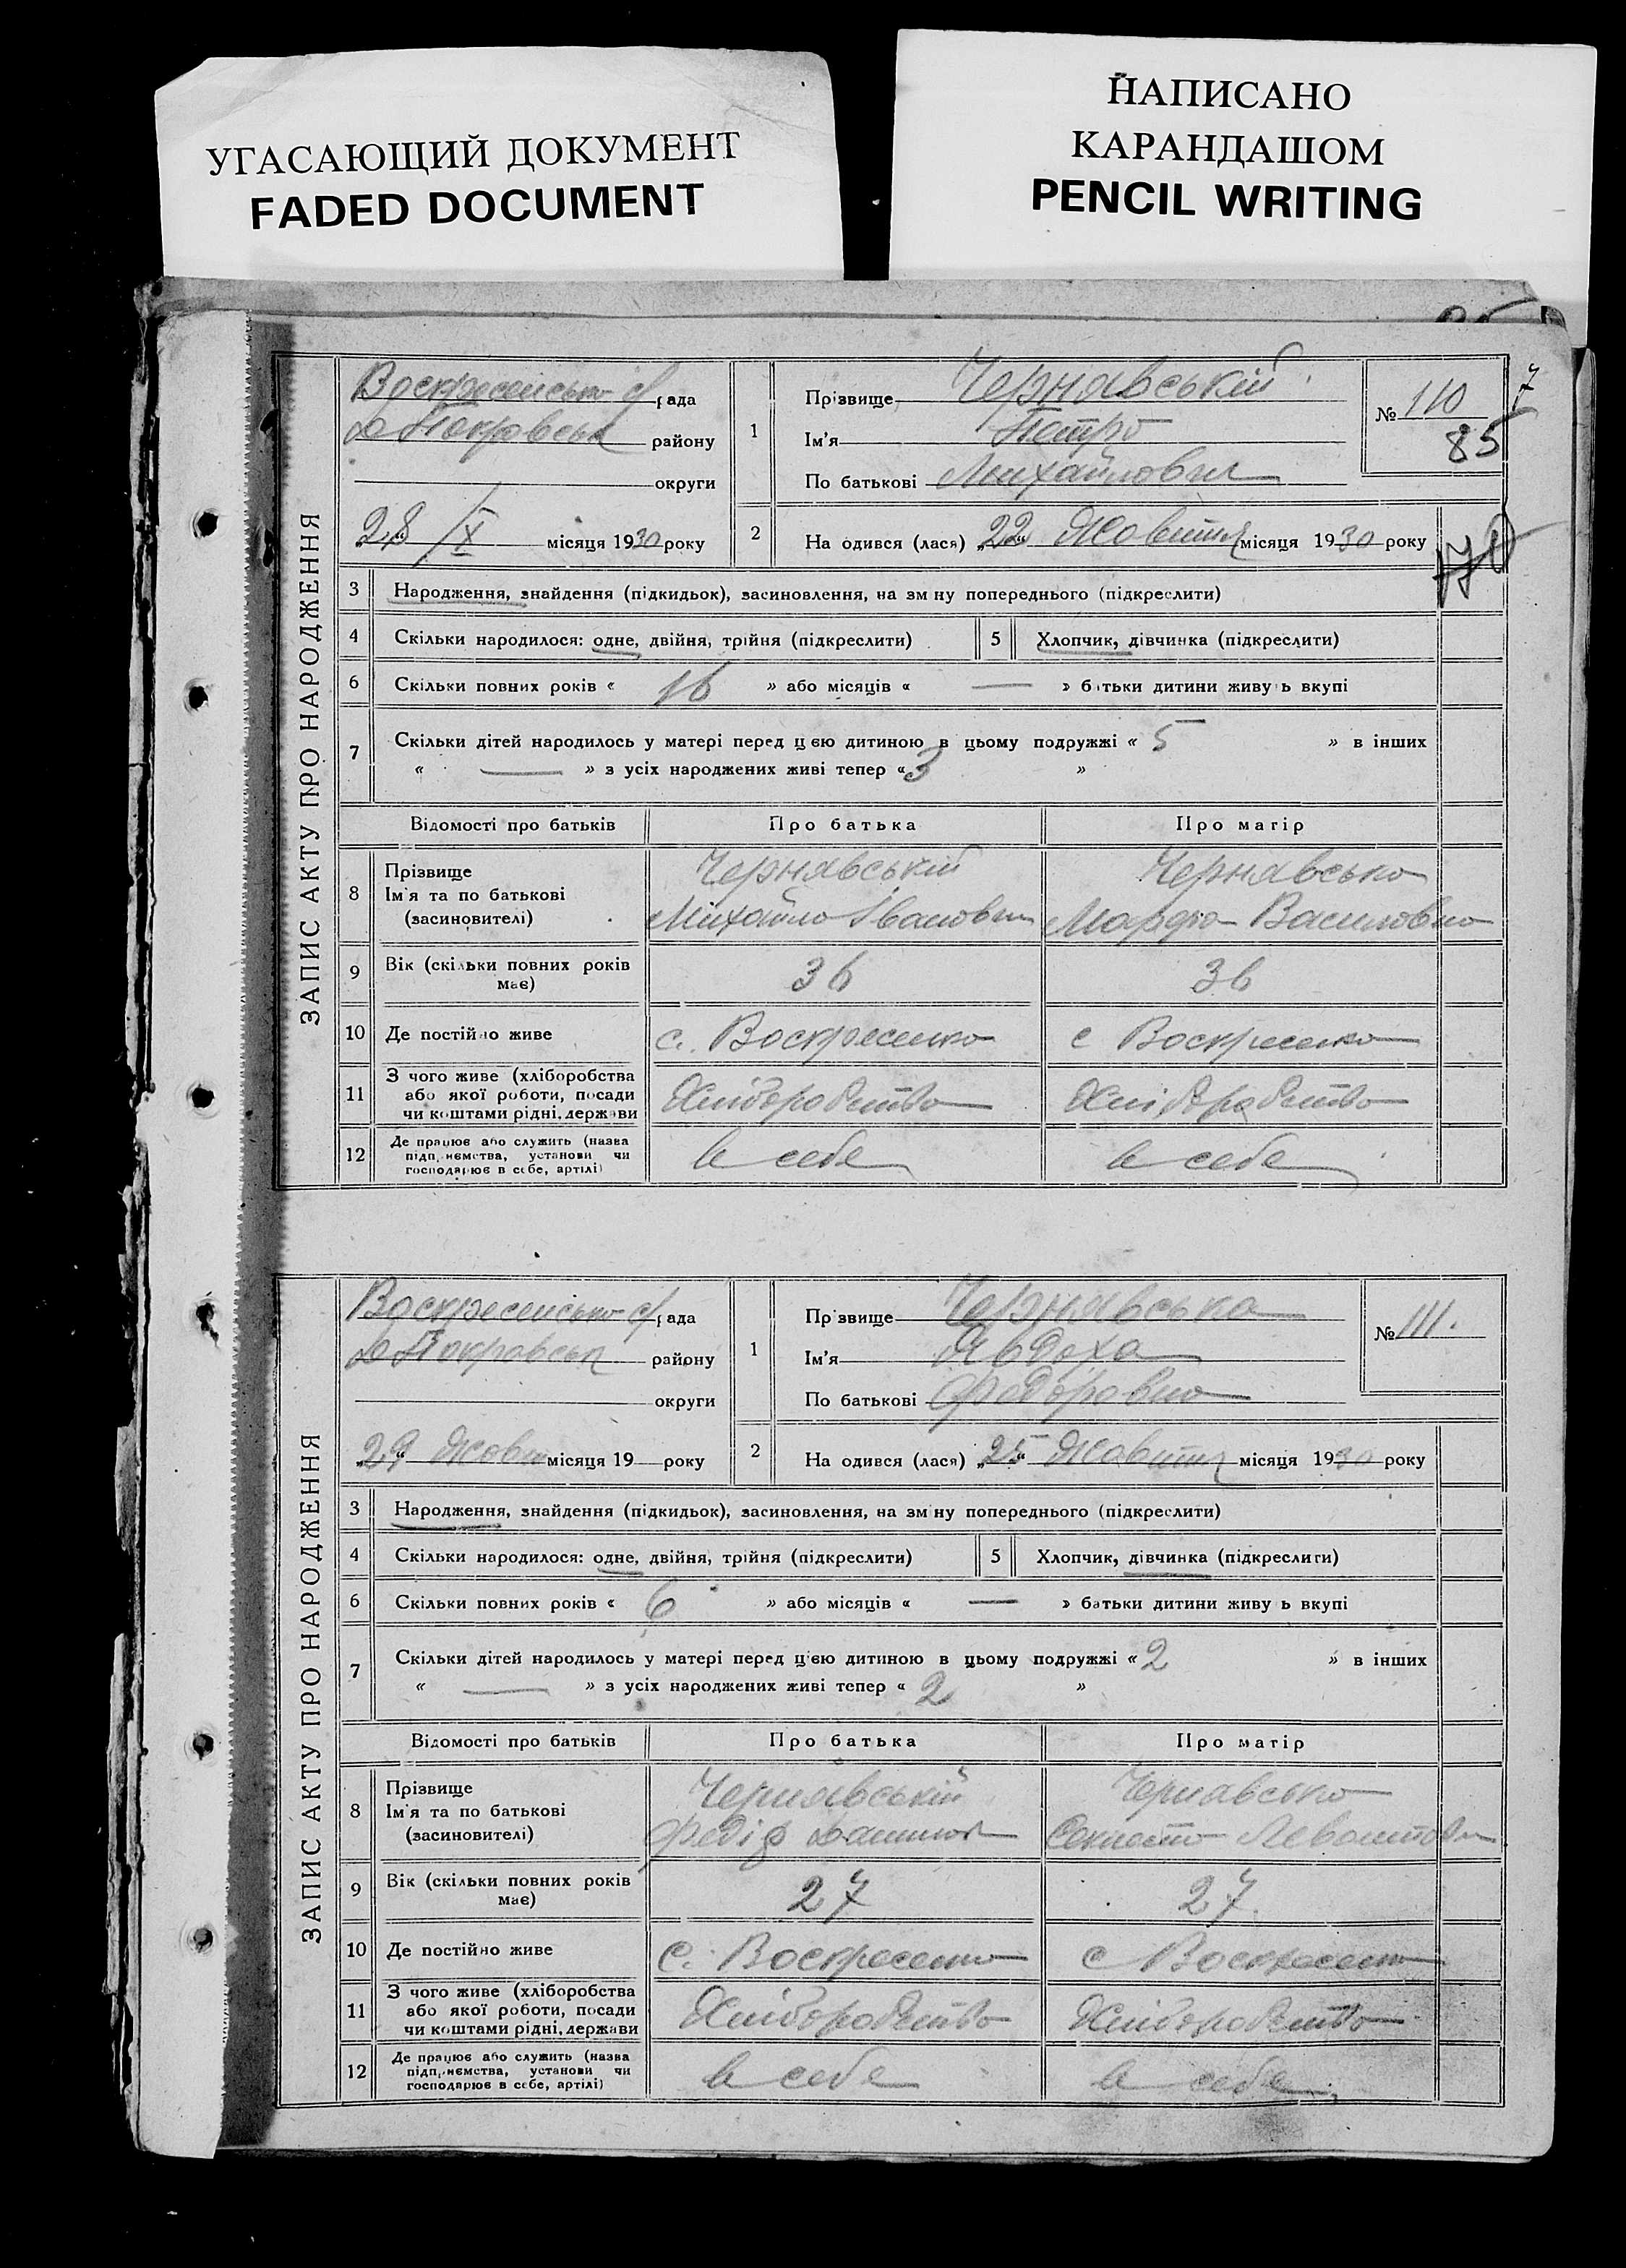 УГАСАЮЩИЙ ДОКУМЕНТ
FADED DOCUMENT
НАПИСАНО
КАРАНДАШОМ
PENCIL WRITING
7
ЗАПИС АКТУ ПРО НАРОДЖЕННЯ
Воскресенсько с/рада
Покровськ району
округи
„28“ /X місяця 1930 року
1
Прізвище Чернявській
Ім'я Петро
По батькові Михайлович
№ 110
85
2 На одився (лася) „22“ Жовтня місяця 1930 року
3 Народження, знайдення (підкидьок), засиновлення, на зм ну попереднього (підкреслити)
4 Скільки народилося: одне, двійня, трійня (підкреслити) 5 Хлопчик, дівчинка (підкреслити)
6 Скільки повних років « 16 » або місяців « — » батьки дитини живу ь вкупі
7 Скільки дітей народилось у матері перед цєю дитиною в цьому подружжі « 5 » в інших
« — » з усіх народжених живі тепер « 3 »
Відомості про батьків Про батька Про матір
8 Прізвище Ім'я та по батькові (засиновителі) Чернявській Михайло Іванович Чернявсько Марфа Василовна
9 Вік (скільки повних років має) 36 36
10 Де постійно живе с. Воскресенко с Воскресенко
11 З чого живе (хліборобства або якої роботи, посади чи коштами рідні, держави Хліборобство Хліборобство
12 Де працює або служить (назва підп, иємства, установи чи господарює в себе, артілі) в себе в себе
ЗАПИС АКТУ ПРО НАРОДЖЕННЯ
Воскресенсько с/рада
Покровськ району
округи
„29“ Жовт місяця 19 — року
1
Пр звище Чернявська
Ім'я Явдоха
По батькові Федоровна
№ 111.
2 На одився (лася) „25“ Жовтня місяця 1930 року
3 Народження, знайдення (підкидьок), засиновлення, на зм ну попереднього (підкреслити)
4 Скільки народилося: одне, двійня, трійня (підкреслити) 5 Хлопчик, дівчинка (підкреслити)
6 Скільки повних років « 6 » або місяців « — » батьки дитини живу ь вкупі
7 Скільки дітей народилось у матері перед цєю дитиною в цьому подружжі « 2 » в інших
« — » з усіх народжених живі тепер « 2 »
Відомості про батьків Про батька Про матір
8 Прізвище Ім'я та по батькові (засиновителі) Чернявській Федір Чернавсько
9 Вік (скільки повних років має) 27 27
10 Де постійно живе с. Воскресенко с Воскресенко
11 З чого живе (хліборобства або якої роботи, посади чи коштами рідні, держави Хліборобство Хліборобство
12 Де працює або служить (назва підп, иємства, установи чи господарює в себе, артілі) в себе в себе